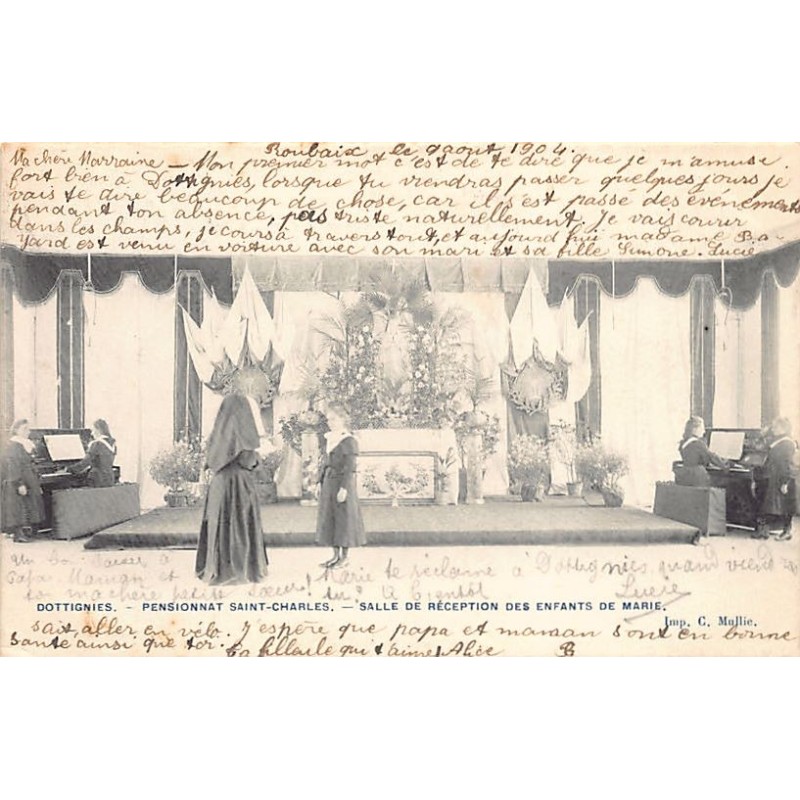 Roubaix le 9 aout 1904.
Ma chère Marraine — Mon premier mot c'est de te dire que je m'amuse
fort bien à Dottignies, lorsque tu viendras passer quelques jours je
vais te dire beaucoup de chose, car il s'est passé des événements
pendant ton absence, pas triste naturellement. Je vais courir
dans les champs, je cours à travers tout, et aujourd'hui madame Ba-
yard est venu en voiture avec son mari et sa fille Simone. Lucie
un bon baiser à
Papa Maman et
ton ma chère petite sœur!
Marie te réclame à Dottignies quand viend
tu? A bientôt
Lucie
DOTTIGNIES. - PENSIONNAT SAINT-CHARLES. - SALLE DE RÉCEPTION DES ENFANTS DE MARIE.
Imp. C. Mullie.
sait, aller en vélo. J'espère que papa et maman sont en bonne
santé ainsi que toi.
ta filleule qui t'aime! Alice B